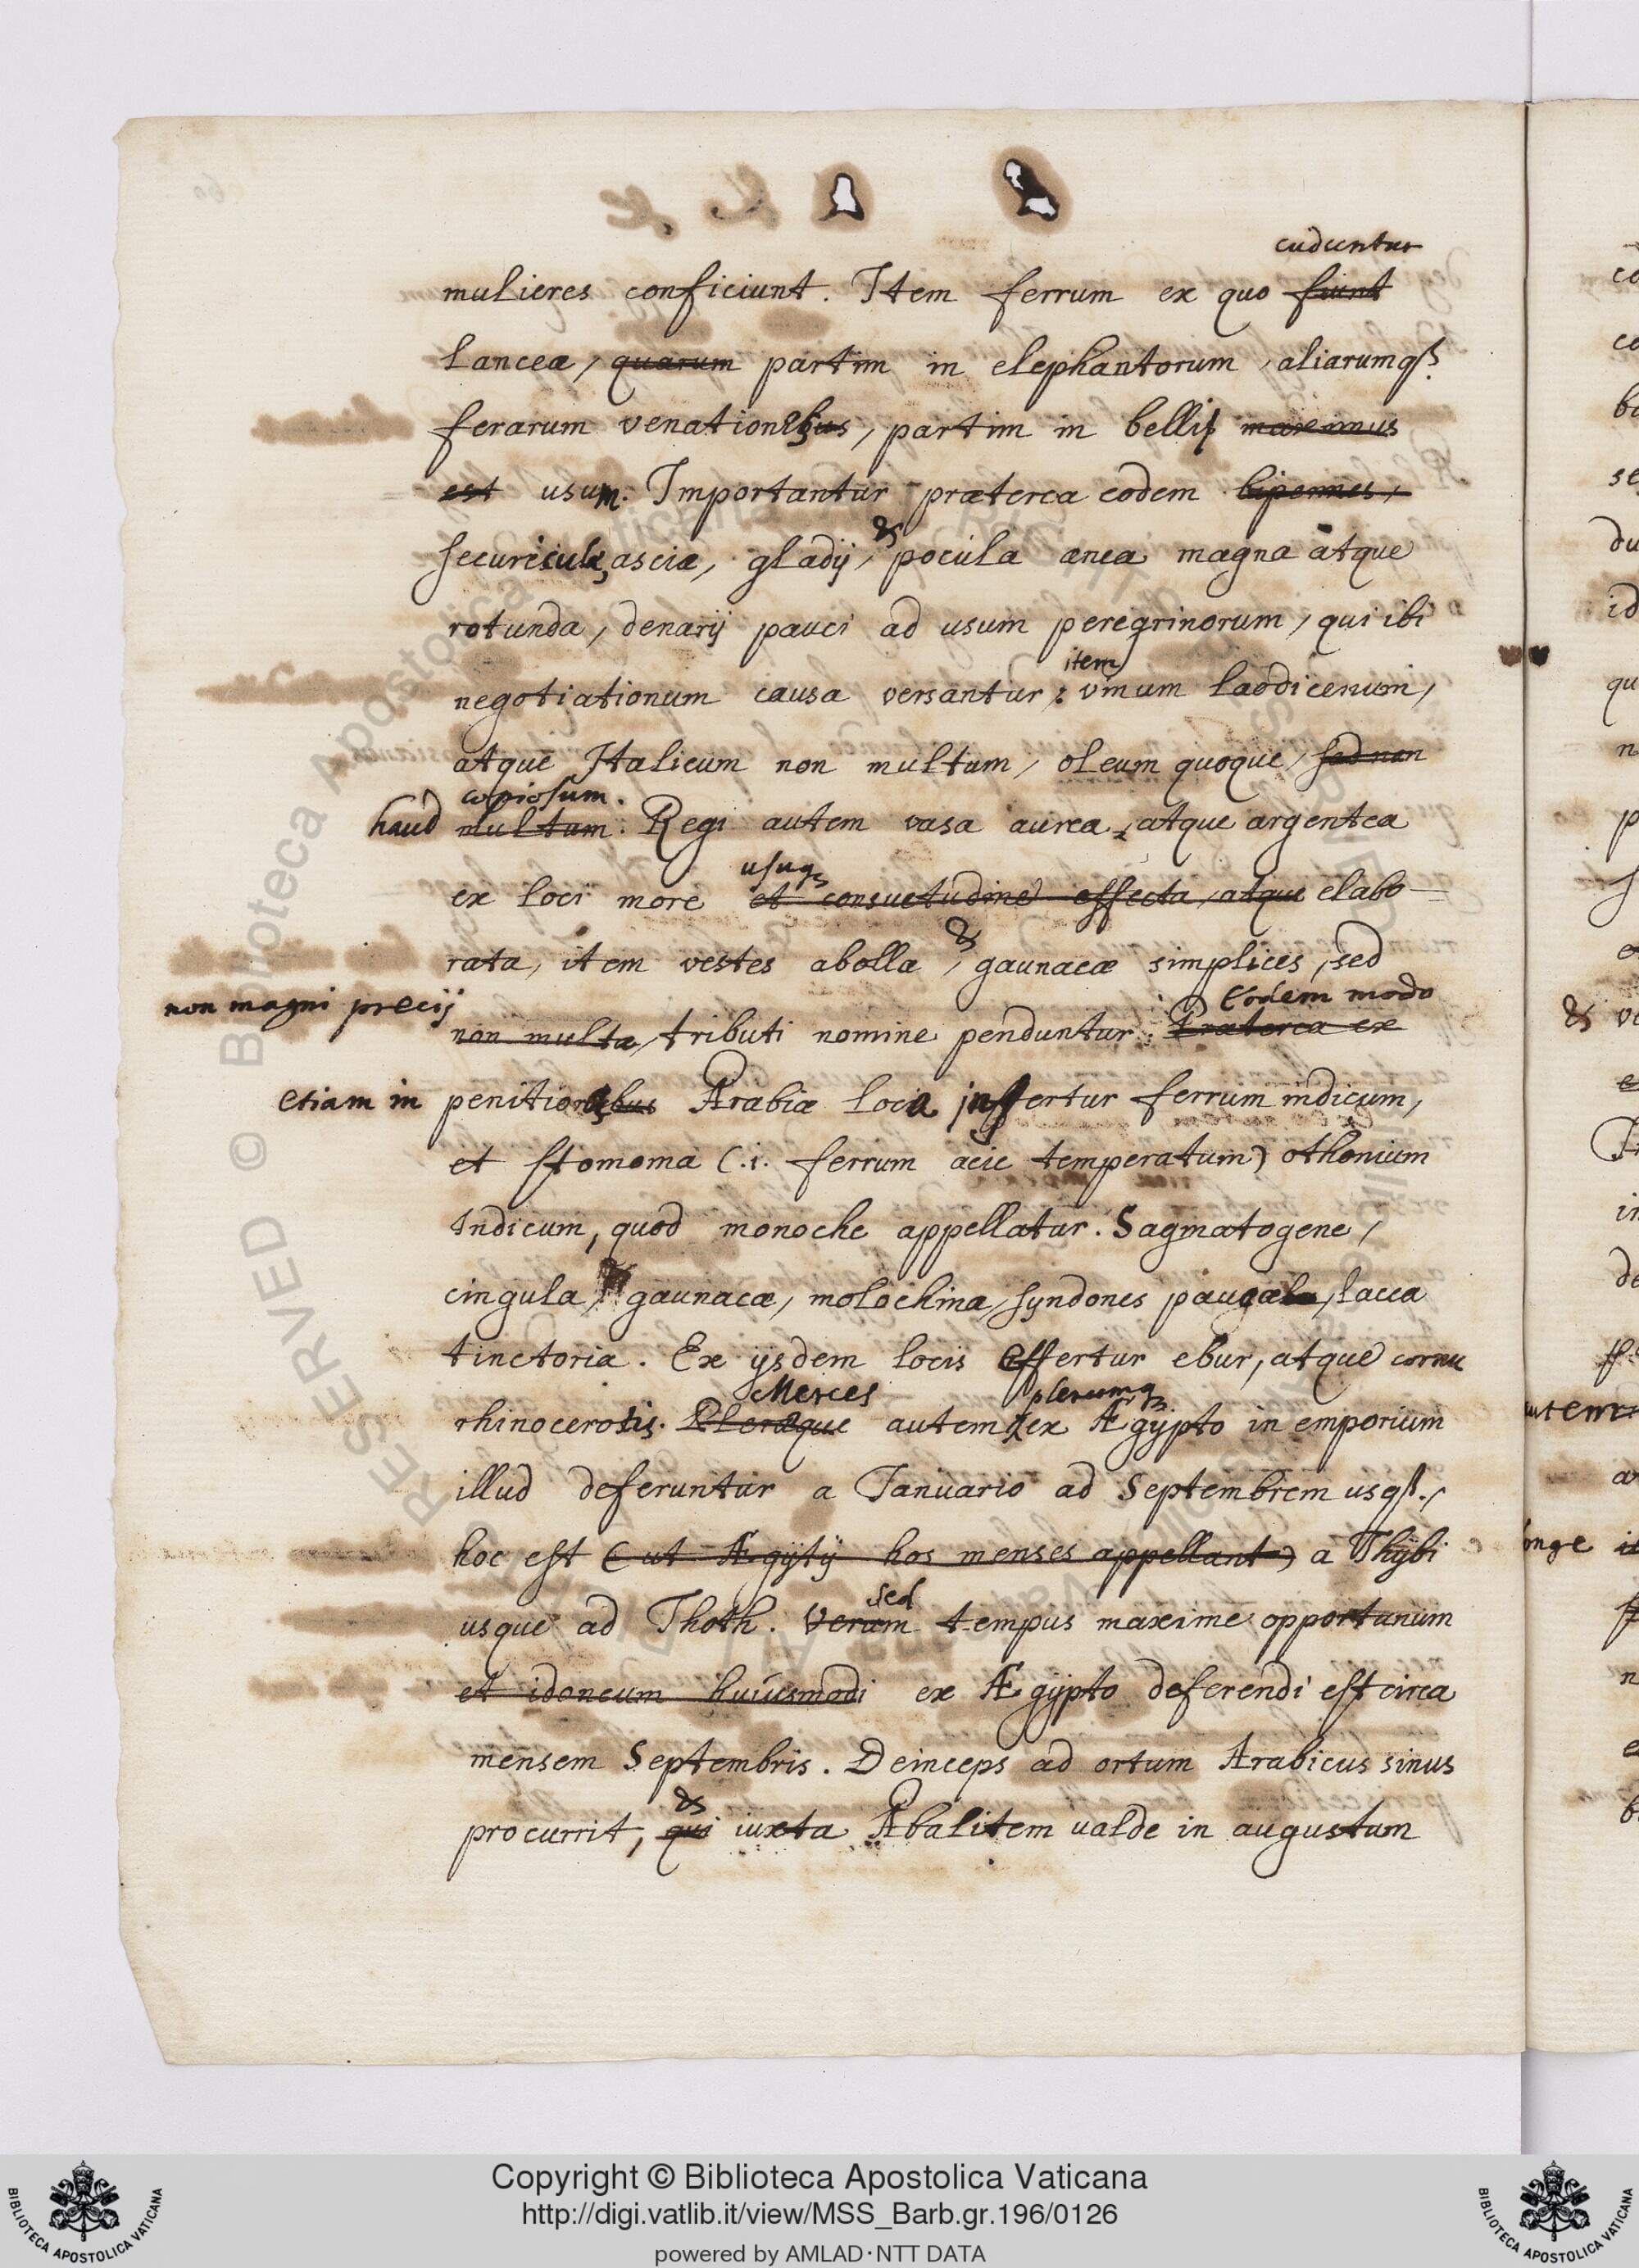 cuduntur
mulieres conficiunt. Item ferrum ex quo fiunt
lanceæ, quarum partim in elephantorum, aliarumq₃
ferarum venationes, partim in bellis maximus
est usum. Importantur præterea eodem bipennes,
&
securiculæ, asciæ, gladij, pocula ænea magna atque
rotunda, denarij pauci ad usum peregrinorum, qui ibi
item
negotiationum causa versantur; vinum laodicenum,
atque Italicum non multum, oleum quoque, sed non
copiosum.
haud multum. Regi autem vasa aurea, atque argentea
usuq₃
ex loci more et consuetudine effecta, atque elabo-
&
rata, item vestes abolla, gaunacæ simplices, sed
non magni precij Eodem modo
non multæ, tributi nomine penduntur. Præterea ex
etiam in penitiora Arabiæ loca infertur ferrum indicum,
et stomoma (.i. ferrum acie temperatum) othonium
Indicum, quod monoche appellatur. Sagmatogene,
cingula, gaunacæ, molochina, syndones paucæ, lacca
tinctoria. Ex ijsdem locis effertur ebur, atque cornu
Merces plerumq₃
rhinocerotis. Pleræque autem ex Ægypto in emporium
illud deferuntur a Ianuario ad Septembrem usq₃,
hoc est (ut Ægytij hos menses appellant) a Thybi
sed
usque ad Thoth. Verum tempus maxime opportunum
et idoneum huiusmodi ex Ægypto deferendi est circa
mensem Septembris. Deinceps ad ortum Arabicus sinus
&
procurrit, qui iuxta Abalitem valde in augustum
autem
longe
RESERVED © Biblioteca Apostolica Vaticana
Copyright © Biblioteca Apostolica Vaticana
http://digi.vatlib.it/view/MSS_Barb.gr.196/0126
powered by AMLAD·NTT DATA
BIBLIOTECA APOSTOLICA VATICANA
BIBLIOTECA APOSTOLICA VATICANA